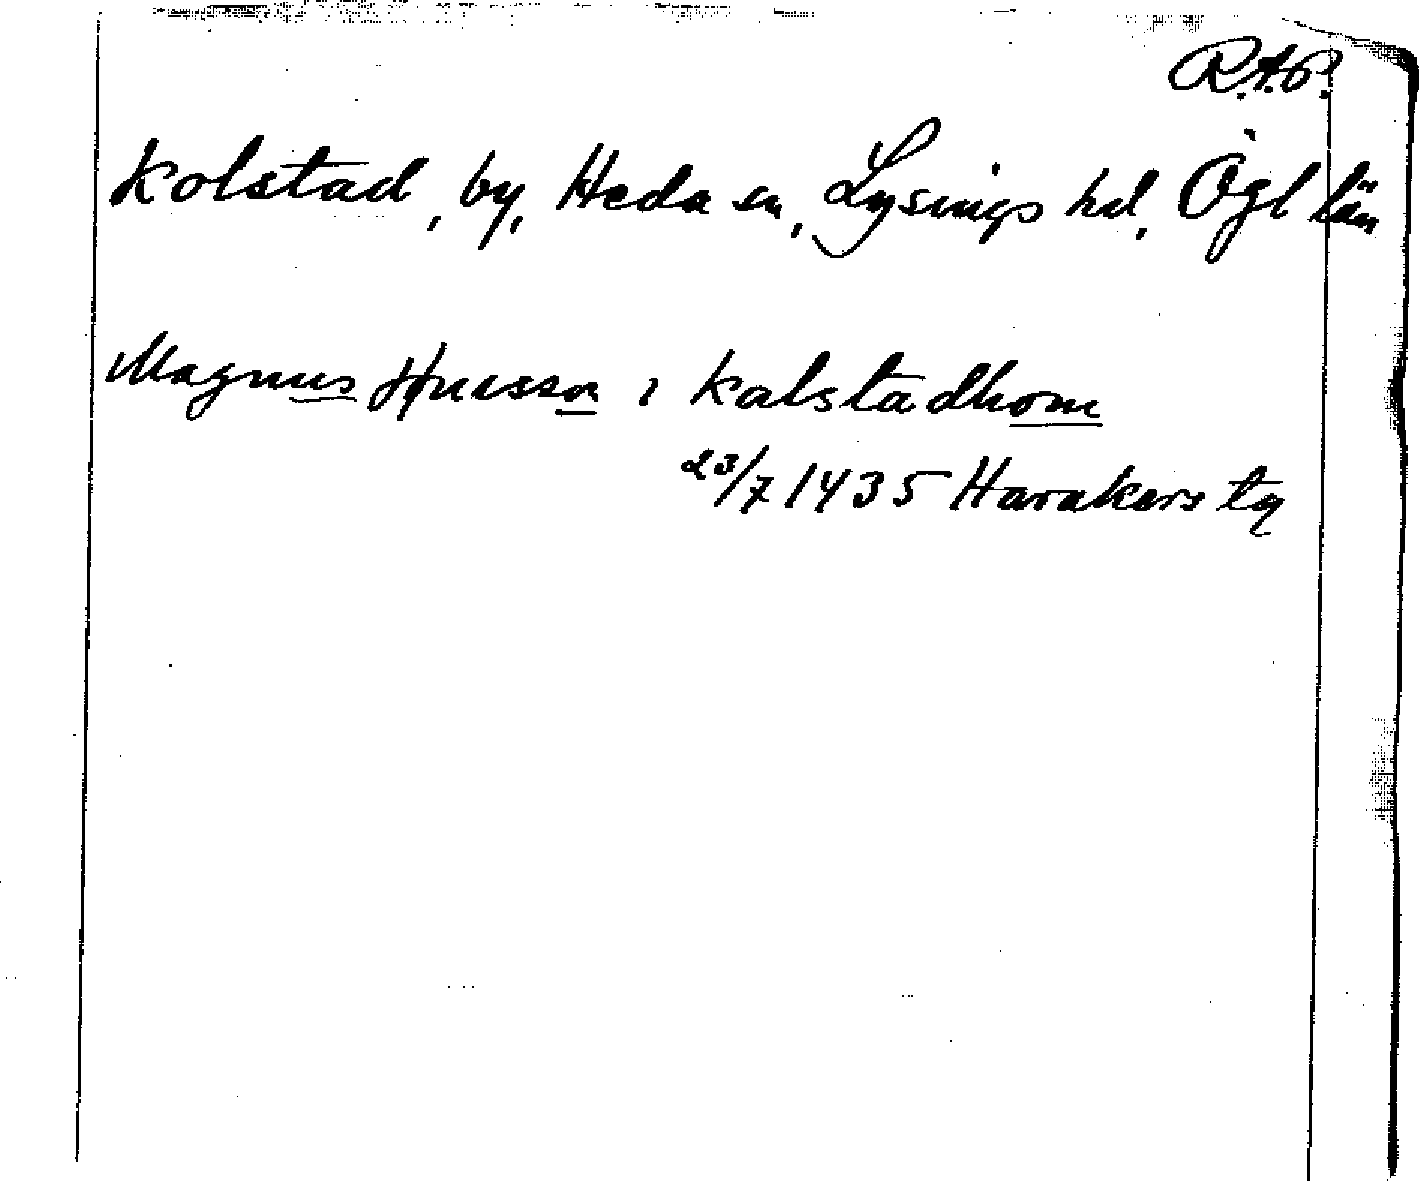 R.A.P.
Kolstad, by, Heda sn, Lysings hd, Ögl län
Magnus i Kalstadhom
23/7 1435 Harakers tg